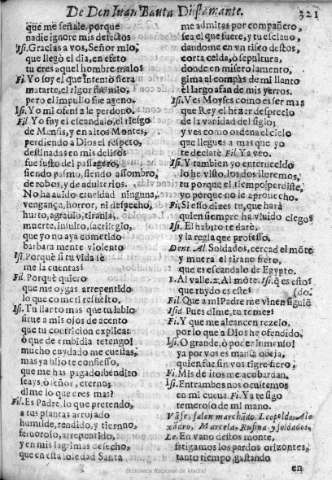 De Don Iuan Bauta Diamante. 321
que me señale, porque
nadie ignore mis defectos
Isi. Gracias a vos, Señor mio,
que llegò el dia, en efeto
tu eres aquel hombre malo?
Fi. Yo soy el que intentò fiera
matarte, el rigor fue mio,
pero el impulso fue ageno.
Isi. Yo mi ofensa te perdono.
Fil. Yo fuy el escandalo, el riesgo
de Menfis, y en altos Montes,
perdiendo a Dios el respeto,
destinadas en mis delitos
fue susto del passagero,
siendo pasmo, siendo assombro,
de robos, y de adulterios.
No ha auido crueldad ninguna,
vengança, horror, ni despecho,
hurto, agrauio, tirania,
muerte, insulto, sacrilegio,
que yo no aya cometido
barbaramente violento
Isi. Porquè si tu vida
me la cuentas?
Fil. Porquè quiero
que me oygas arrepentido
lo que cometi resuelto,
Isi. Tu llanto mas que tu labio
sirue a mis ojos de acento
que tu contricion explica:
ò que de embidia te tengo!
mucho cuydado me cuestas,
mas ya bien te confiesso,
que me has pagado: bendito
seays, ò señor, eterno;
dime lo que eres mas?
Fil. Es Padre, lo que pretendo,
a tus plantas arrojado
humilde, rendido, y tierno,
feruoroso, arrepentido,
y en mis lagrimas deshecho,
que en esta soledad Santa
me admitas por compañero,
sea el que fuere, y tu esclauo,
dandome en vn risco destos
corta celda, ò sepultura,
donde en misero lamento,
gima al compas de mi llanto
el largo afan de mis yerros.
Isi. Ves Moyses como es ser mas
que Rey el hazer desprecio
de la vanidad del siglo;
y ves como ordena el cielo
que llegues a mas que yo
te declare. Fil. Ya veo.
Isi. Y tambien yo enternecido
lo he visto, los dos lloremos,
tu porque el tiempo perdiste,
yo porque no le aprouecho.
Fi. Si esso dizes tu, que harà
quien siempre ha viuido ciego?
Isi. El habito te darè,
y la regla que professo.
Dent. Al. Soldados, cercad el mõte
y muera el tirano fiero,
que es escandalo de Egypto.
1. Al valle. 2. Al mõte. Isi. q̃ es esto?
que ruydo es este?
Fil. Que a mi Padre me vienen siguiẽdo
Isid. Pues dime, tu temes?
Fi. Y que me alcancen rezelo,
por lo que a Dios he ofendido,
Isi. O grande, ò poder inmenso!
ya por vos es mansa oueja,
quien fue sin vos tigre fiero;
Fi. Mis delitos me acobardan.
Isi. Entrambos nos ocultemos
en mi cueua. Fi. Ya te sigo
temeroso de mi mano.
Vãse, salen marchando, Leopoldo, Ale-
xandro, Marcela, Rufina y soldados.
Le. En vano destos monte,
fatigamos los pardos orizontes,
tanto tiempo gastando
en
Biblioteca Nacional de Madrid